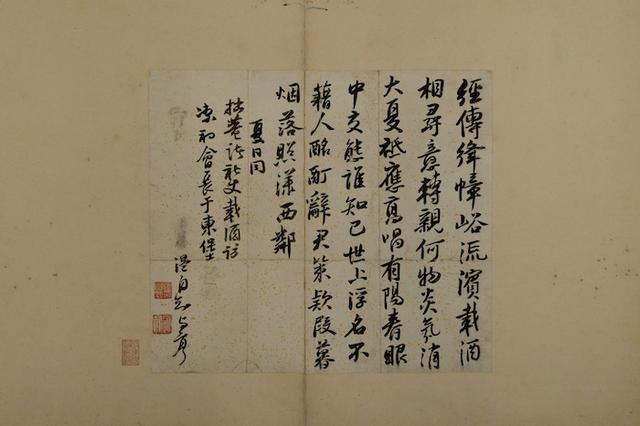 經傳絳幛峪流濱載酒
相尋意轉親何物炎氛消
大夏祗應高唱有陽春眼
中交態誰知己世上浮名不
藉人酩酊辭君策款段暮
烟落照漾西鄰
夏日同
拙菴諸社丈載酒訪
會長于東堡
温自知与亨